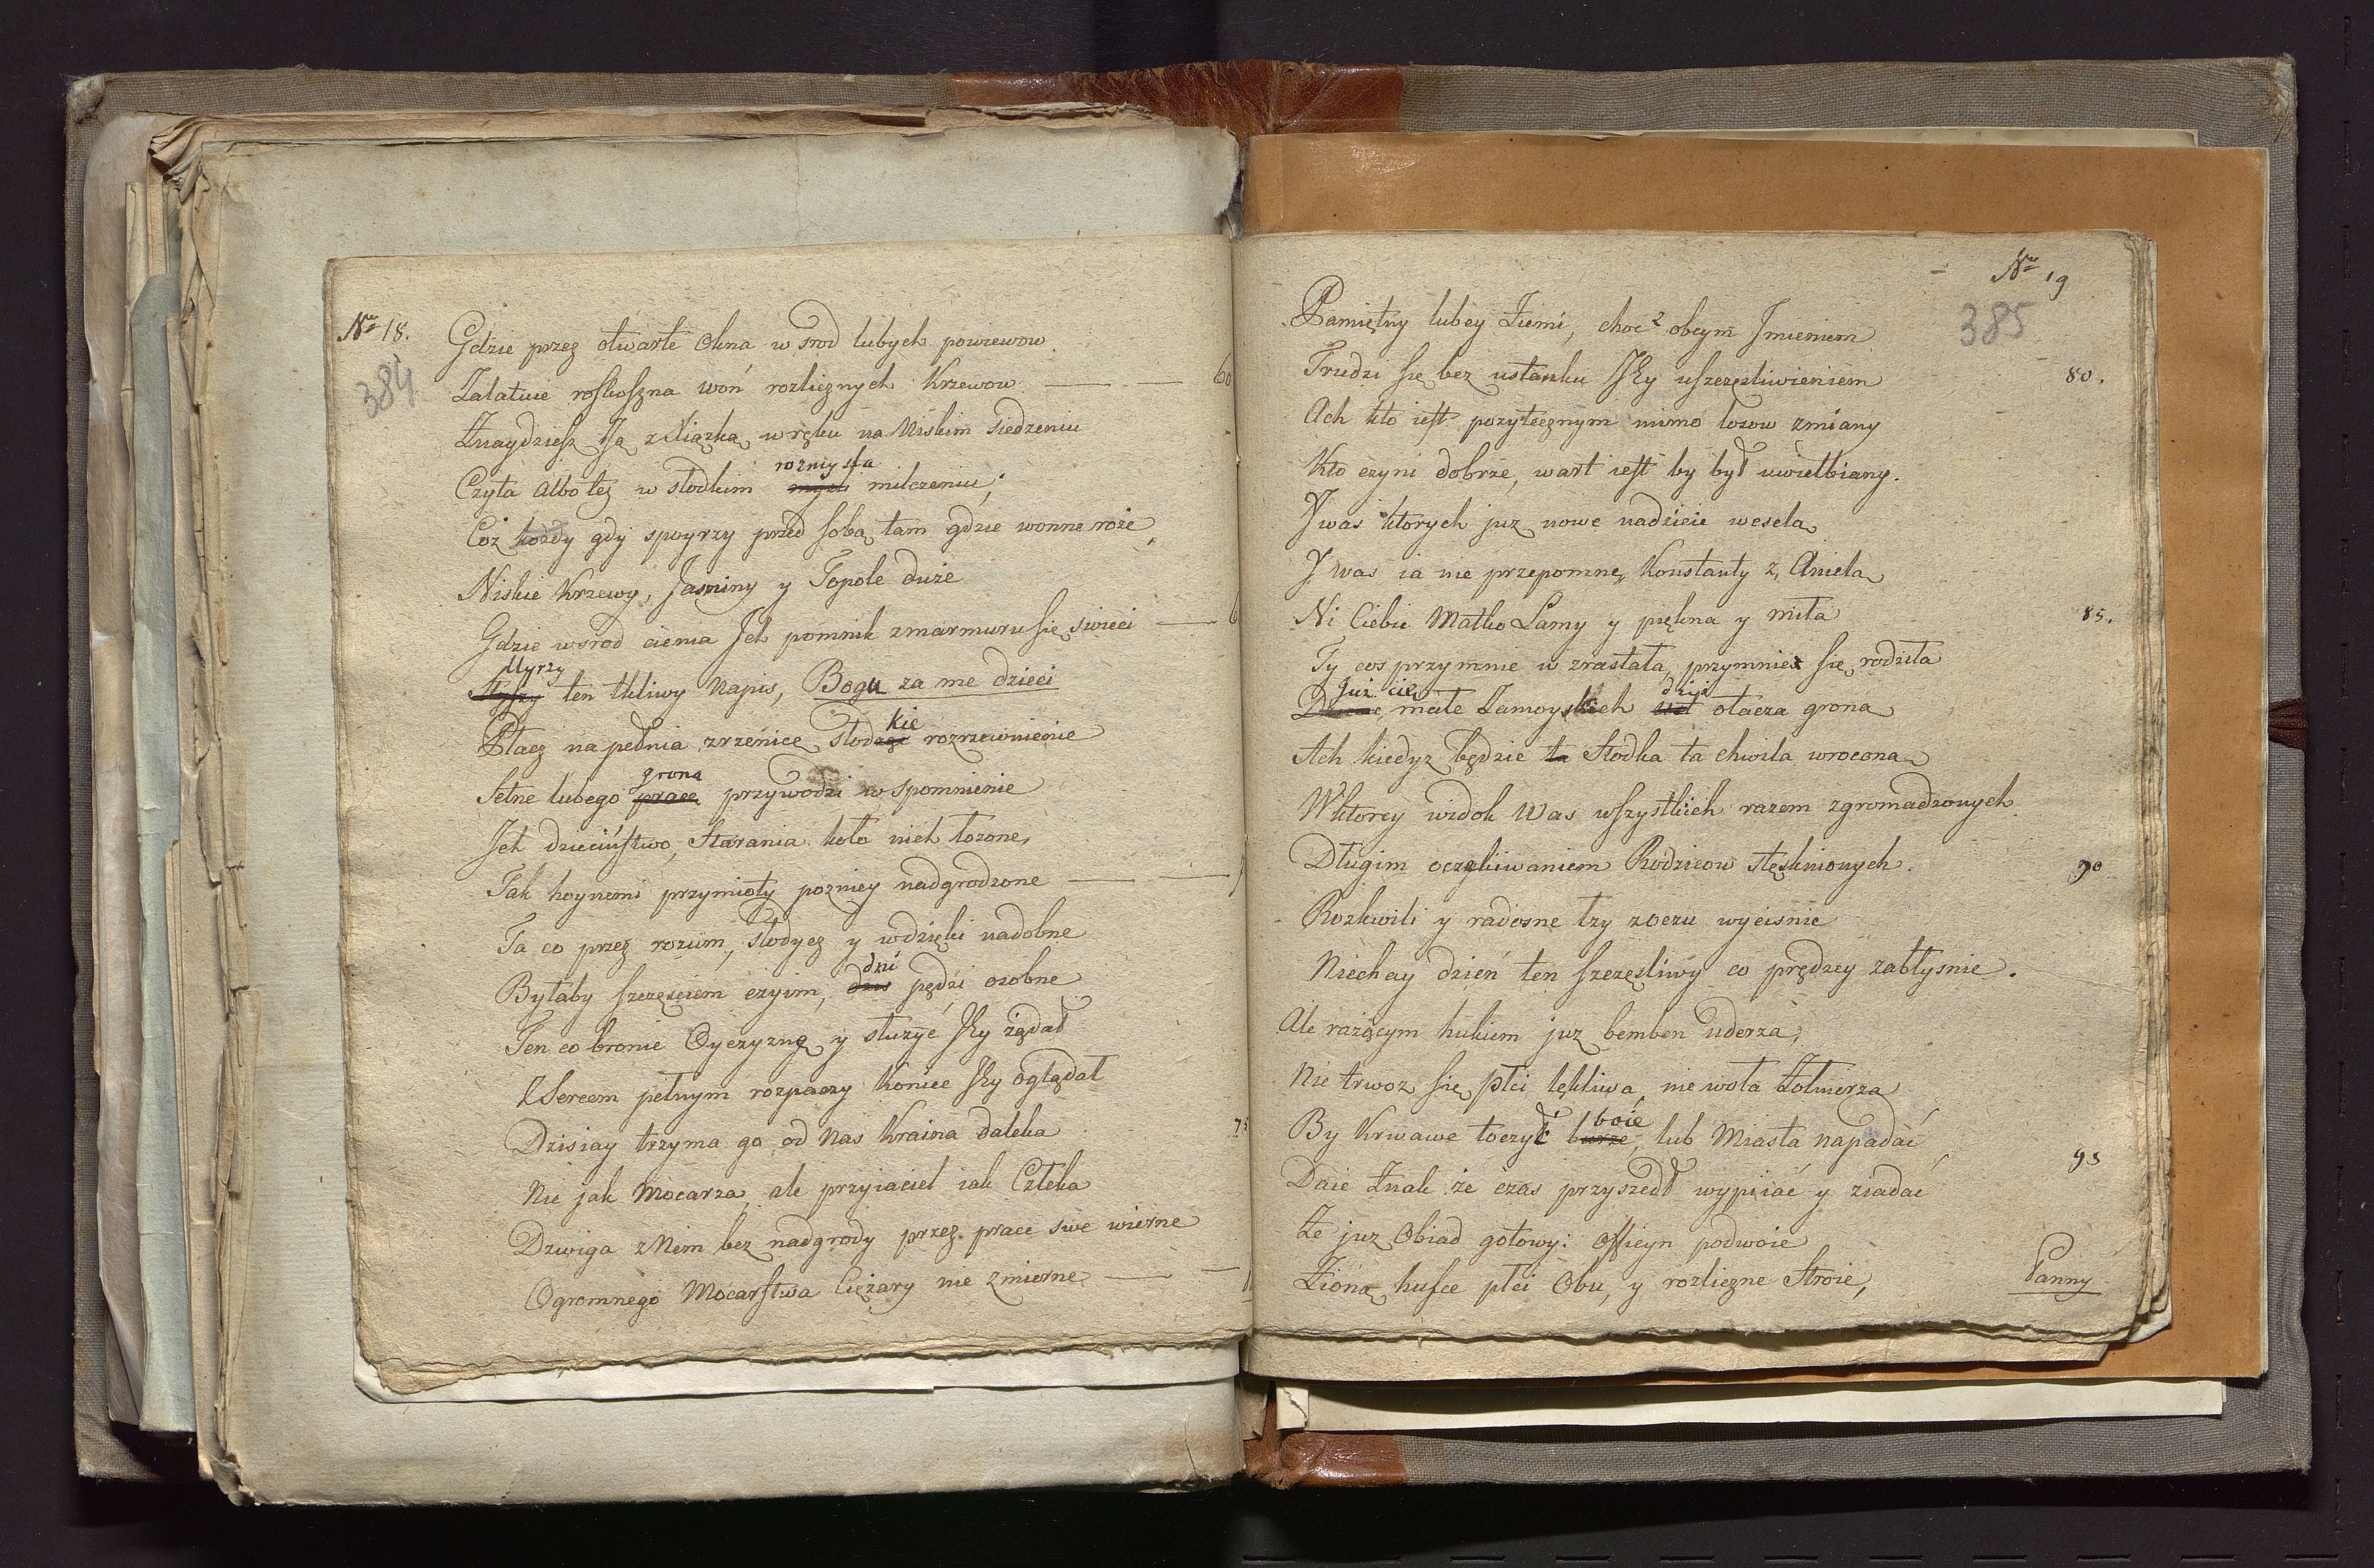 No 18.
384
Gdzie przez otwarte okna w srod lubych powiewow
Zalatuie roskoszna woń rozlicznych krzewow 60
Znaydziesz Ją z Xiążką w ręku na Niskim siedzeniu
rozmyśla
Czyta albo też w słodkim milczeniu;
Coż kozdy gdy spoyrzy przed sobą tam gdzie wonne roże,
Niskie Krzewy, Jasminy y Topole duże
Gdzie wsrod cienia Jch pomnik z marmuru się swieci
Uyrzy
ten tkliwy Napis, Bogu za me dzieci
kie
Płacz napełnia zrzenice słodzge rozrzewnienie
grona
Setne lubego prace przywodzi w spomnienie
Jch dzieciństwo, Starania koło nich łozone,
Tak hoynemi przymioty pozniey nadgrodzone
Ta co przez rozum, słodycz y wdzięki nadobne
dni
Byłaby szczęściem czyim, dzis pędzi osobne
Ten co bronic Oyczyznę y słuzyć Jey żądał
Z Sercem pełnym rozpaczy koniec Jey oglądał
Dzisiay trzyma go od Nas Kraina daleka 75
Nie jak Mocarza, ale przyiaciel iak Człeka
Dzwiga z Nim bez nadgrody przez prace swe wierne
Ogromnego Mocarstwa Ciężary nie zmierne
No 19
385
Pamiętny lubey Ziemi, choc obcym Jmieniem
Trudzi się bez ustanku Jey uszczęsliwieniem 80.
Ach kto iest pozytecznym mimo losow zmiany
Kto czyni dobrze, wart iest by był uwielbiany.
J was ktorych juz nowe nadzieie weselą
J was ia nie przepomnę, Konstanty z Anielą
Ni Ciebie Matko Lamy y piękna y miła 85.
Ty cos przymnie w zrastała, przymnie się rodziła
Juz cię dziś
małe Zamoyskich otacza grona
Ach kiedyz będzie ta Słodka ta chwila wrocona
W ktorey widok Was wszystkich razem zgromadzonych
Długim oczekiwaniem Rodzicow stęsknionych. 90
Rozkwili y radosne łzy z oczu wycisnie
Niechay dzień ten szczęsliwy co prędzey zabłysnie.
Ale rażącym hukiem juz bemben uderza,
Nie trwoz się płci lękliwa, nie woła Zołnierza
boie
By Krwawe toczyć burze, lub Miasta napadać
Daie Znak że czas przyszedł wypiiać y ziadać 95
Ze juz Obiad gotowy: Officyn podwoie
Zioną hufce płci Obu, y rozliczne Stroie,
Panny